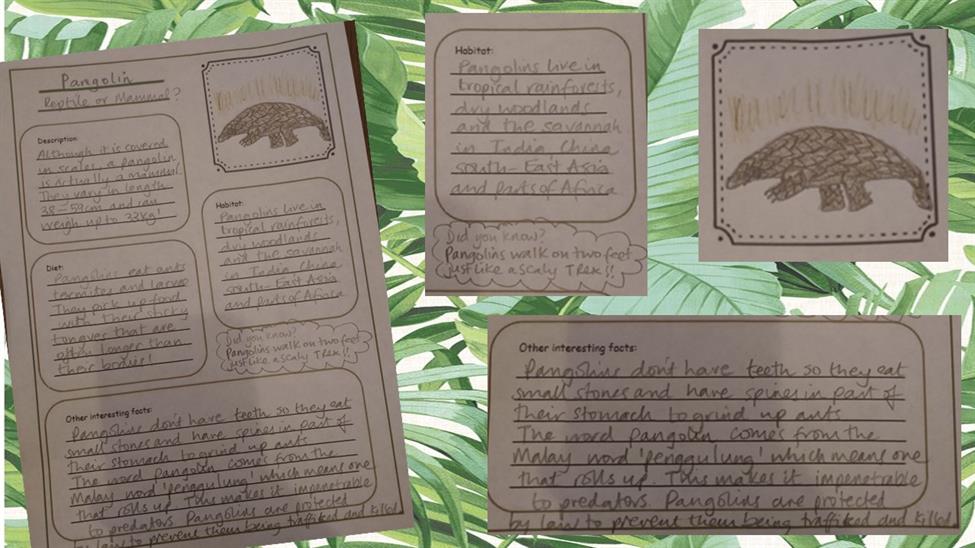 Pangolin
Reptile or Mammal?
Description:
Although it is covered
in scales, a pangolin
is actually a mammal.
They vary in length
38 - 59cm and can
weigh up to 33kg!
Habitat:
Pangolins live in
tropical rainforests,
dry woodlands
and the savannah
in India, China,
South-East Asia
and parts of Africa
Diet:
Pangolins eat ants
termites and larvae
They pick up food
with their sticky
tongues that are
often longer than
their bodies!
Did you know?
Pangolins walk on two feet
just like a scaly T Rex!!
Other interesting facts:
Pangolins don't have teeth so they eat
small stones and have spines in part of
their stomach to grind up ants
The word Pangolin comes from the
Malay word 'penggulung' which means one
that rolls up. This makes it impenetrable
to predators. Pangolins are protected
by law to prevent them being trafficked and killed
Habitat:
Pangolins live in
tropical rainforests,
dry woodlands
and the savannah
in India, China,
South-East Asia
and parts of Africa
Did you know?
Pangolins walk on two feet
just like a scaly T Rex!!
Other interesting facts:
Pangolins don't have teeth so they eat
small stones and have spines in part of
their stomach to grind up ants
The word Pangolin comes from the
Malay word 'penggulung' which means one
that rolls up. This makes it impenetrable
to predators. Pangolins are protected
by law to prevent them being trafficked and killed